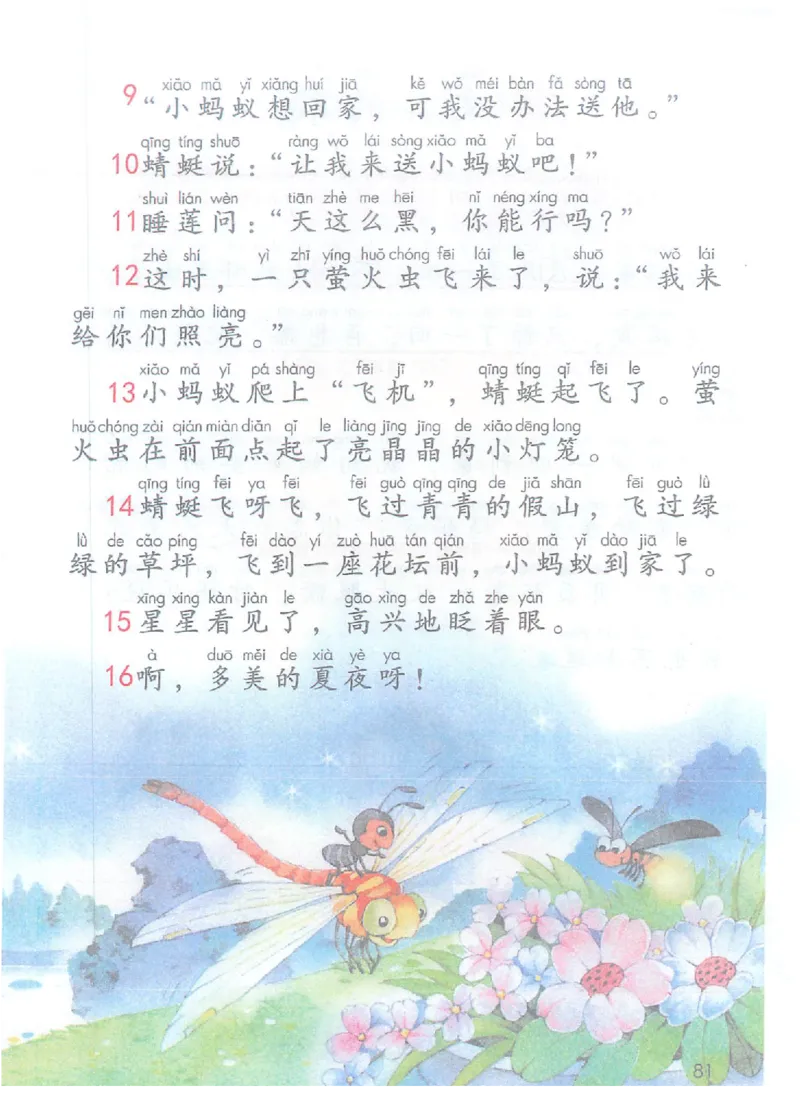 xiǎo mǎ yǐ xiǎng huí jiā kě wǒ méi bàn fǎ sòng tā
9 “小蚂蚁想回家，可我没办法送他。”
qīng tíng shuō ràng wǒ lái sòng xiǎo mǎ yǐ ba
10 蜻蜓说：“让我来送小蚂蚁吧！”
shuì lián wèn tiān zhè me hēi nǐ néng xíng ma
11 睡莲问：“天这么黑，你能行吗？”
zhè shí yì zhī yíng huǒ chóng fēi lái le shuō wǒ lái
12 这时，一只萤火虫飞来了，说：“我来
gěi nǐ men zhào liàng
给你们照亮。”
xiǎo mǎ yǐ pá shàng fēi jī qīng tíng qǐ fēi le yíng
13 小蚂蚁爬上“飞机”，蜻蜓起飞了。萤
huǒ chóng zài qián miàn diǎn qǐ le liàng jīng jīng de xiǎo dēng long
火虫在前面点起了亮晶晶的小灯笼。
qīng tíng fēi ya fēi fēi guò qīng qīng de jiǎ shān fēi guò lǜ
14 蜻蜓飞呀飞，飞过青青的假山，飞过绿
lǜ de cǎo píng fēi dào yí zuò huā tán qián xiǎo mǎ yǐ dào jiā le
绿的草坪，飞到一座花坛前，小蚂蚁到家了。
xīng xing kàn jiàn le gāo xìng de zhǎ zhe yǎn
15 星星看见了，高兴地眨着眼。
à duō měi de xià yè ya
16 啊，多美的夏夜呀！
81